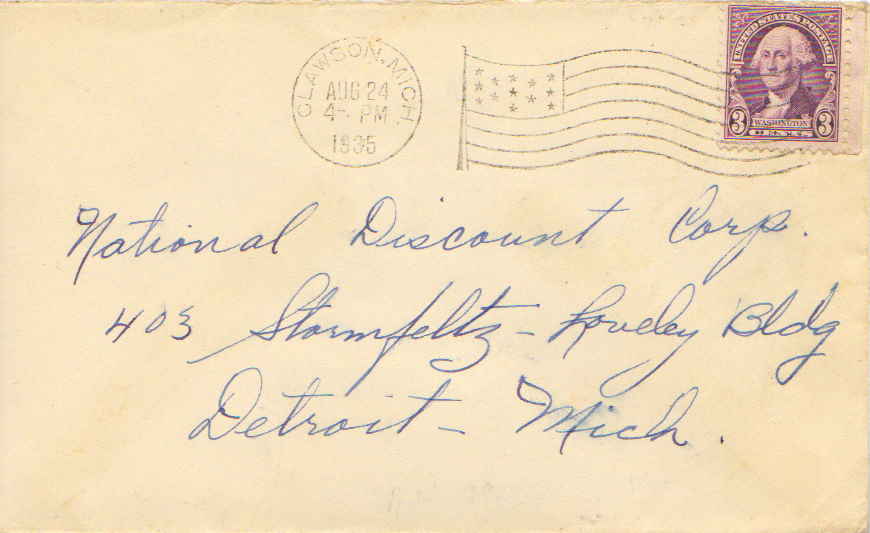 CLAWSON, MICH.
AUG 24
4 - PM
1935
UNITED STATES POSTAGE
WASHINGTON
3 3
National Discount Corp.
403 Stormfeltz - Loveley Bldg
Detroit - Mich.